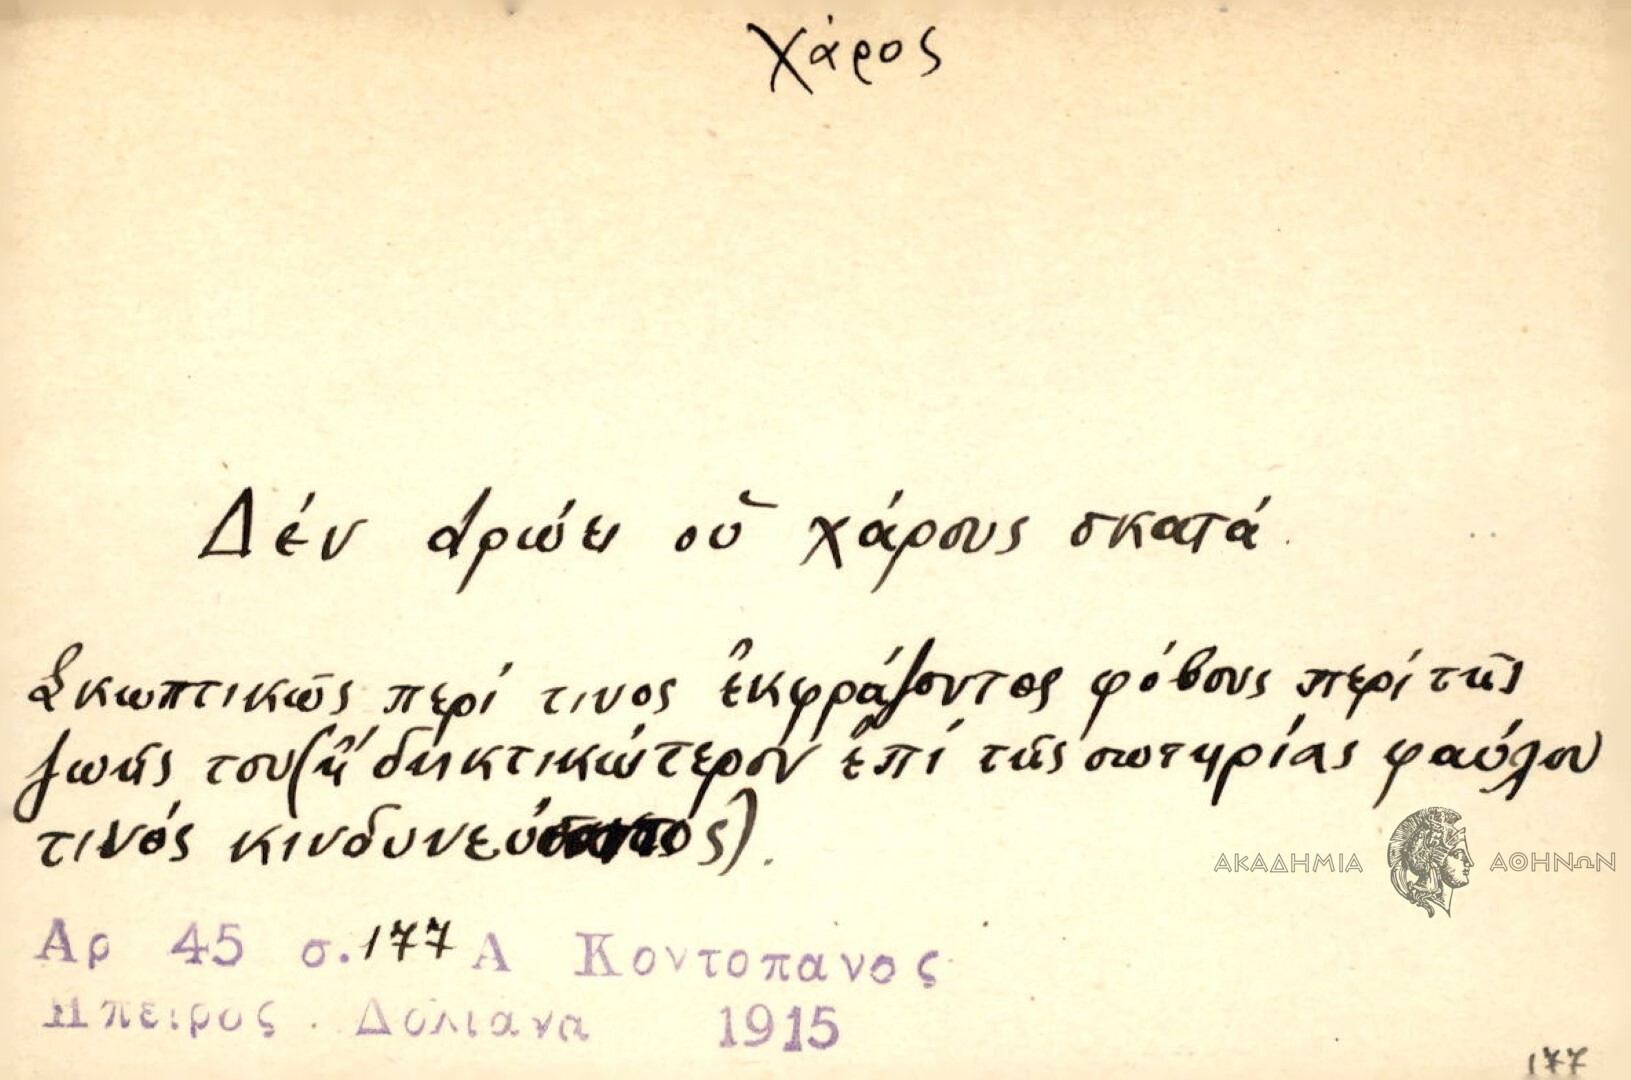 Χάρος
Δέν τρώει οὑ χάρους σκατά.
Σκωπτικῶς περί τινος ἐκφράζοντος φόβους περί τῆς
ζωῆς του (ἤ δηκτικώτερον ἐπί τῆς σωτηρίας φαύλου
τινός κινδυνεύσαντος).
Αρ 45 σ. 177 Α Κοντοπανος
Ηπειρος. Δολιανα 1915
ΑΚΑΔΗΜΙΑ ΑΘΗΝΩΝ
177